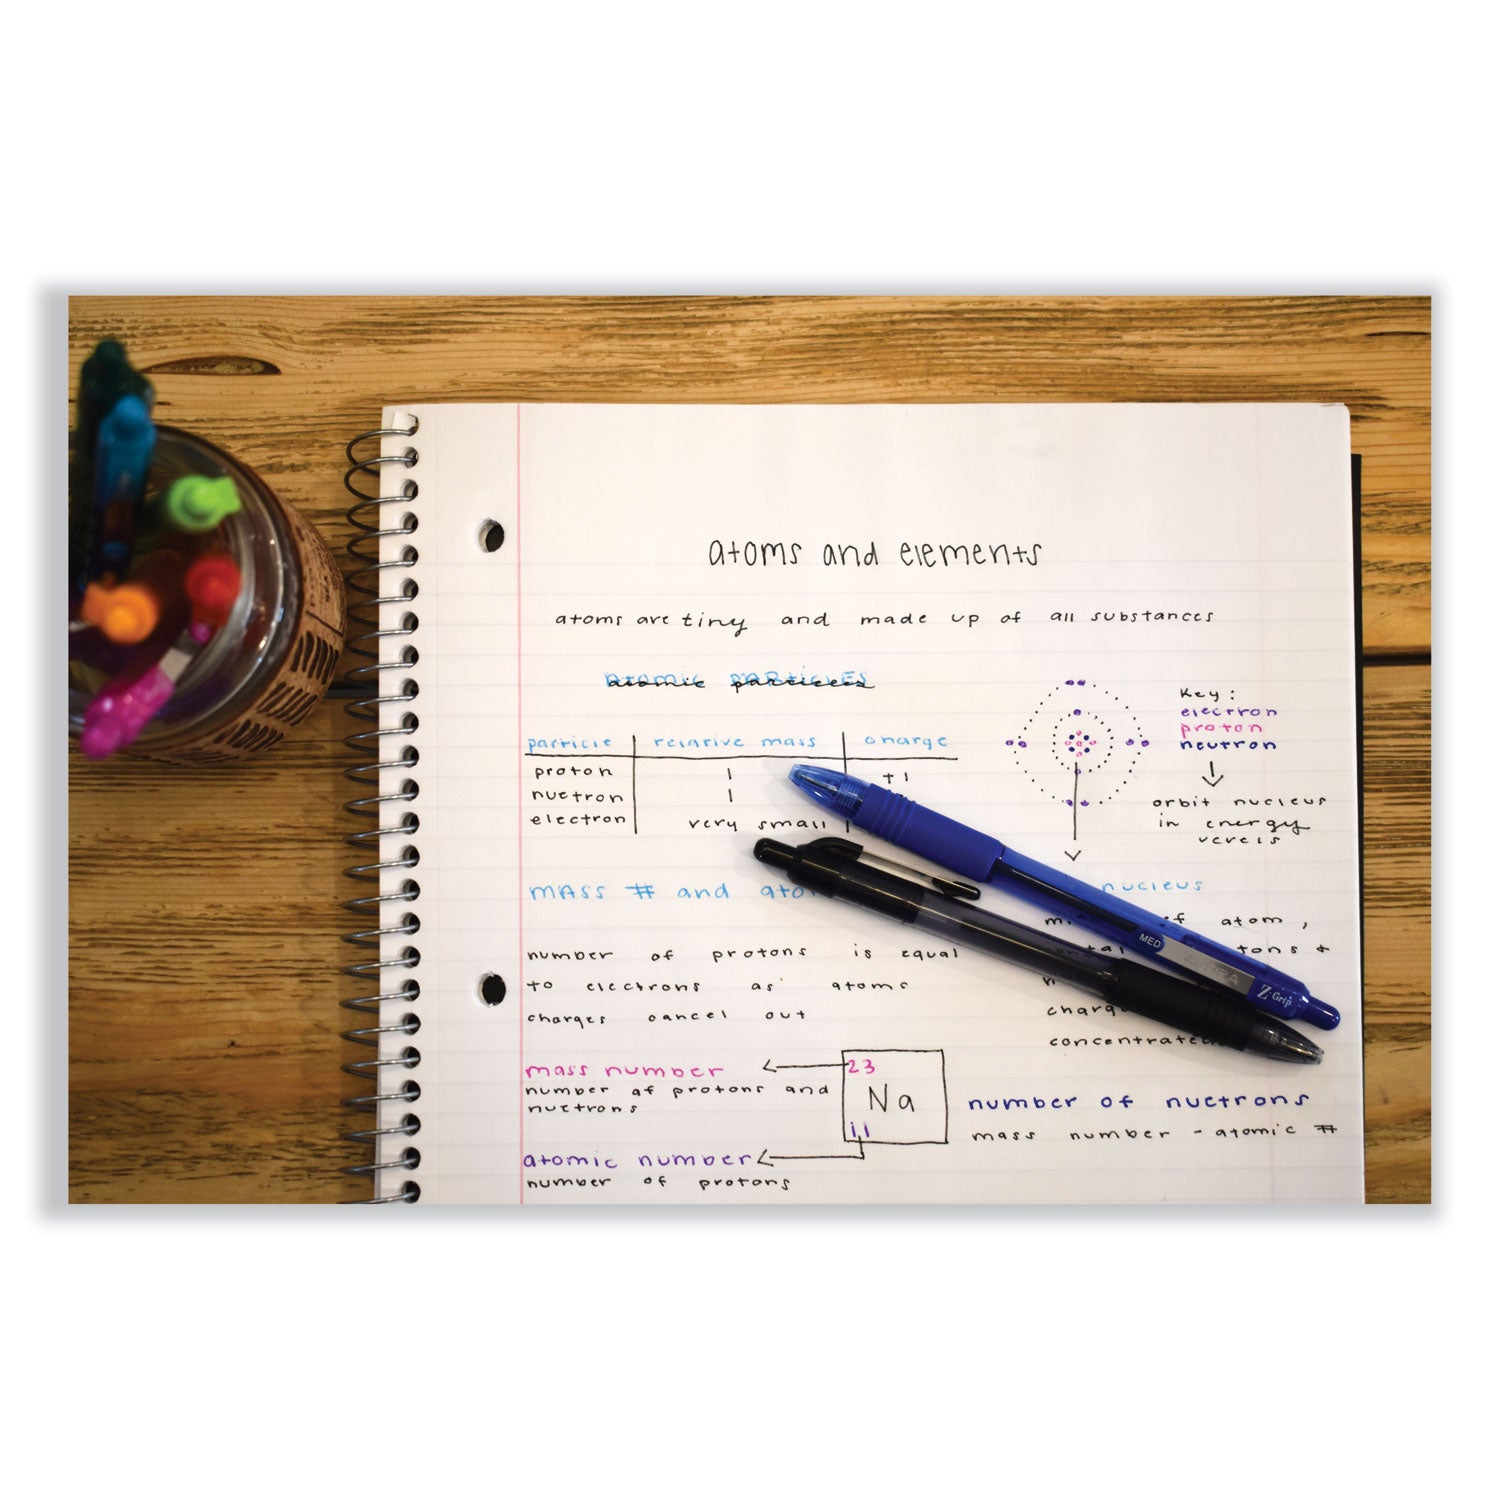 atoms and elements
atoms are tiny and made up of all substances
atomic particles
particle relative mass charge
proton 1 +1
nuetron 1
electron very small
Key:
electron
proton
neutron
orbit nucleus
in energy
mass # and
nucleus
of atom,
number of protons is equal
to electrons as atoms
charges cancel out
mass number
number of protons and
nuetrons
23
Na
11
atomic number
number of protons
number of nuetrons
mass number - atomic #
MED
ZEBRA
Z-Grip